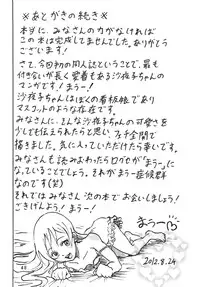 ※あとがきの続き※
本当に、みなさんの力がなければ
この本は完成してませんでした。ありがとう
ございます！
さて、今回初の同人誌ということで、最も
付き合いが長く愛着もある沙夜子ちゃんの
マンガです！まうー！
沙夜子ちゃんはぼくの看板娘であり
マスコットのような存在です。
みなさんに、そんな沙夜子ちゃんの可愛さを
少しでも伝えられたらと思い、フェチ全開で
描きました。気に入っていただけたら幸いです。
みなさんも読みおわったらログセが「まうー」に
なっていることでしょう。それがまうー症候群
なのです(笑)
それではみなさん次の本でお会いしましょう！
ごきげんよう！まうー！
まうー♡
2012.8.24